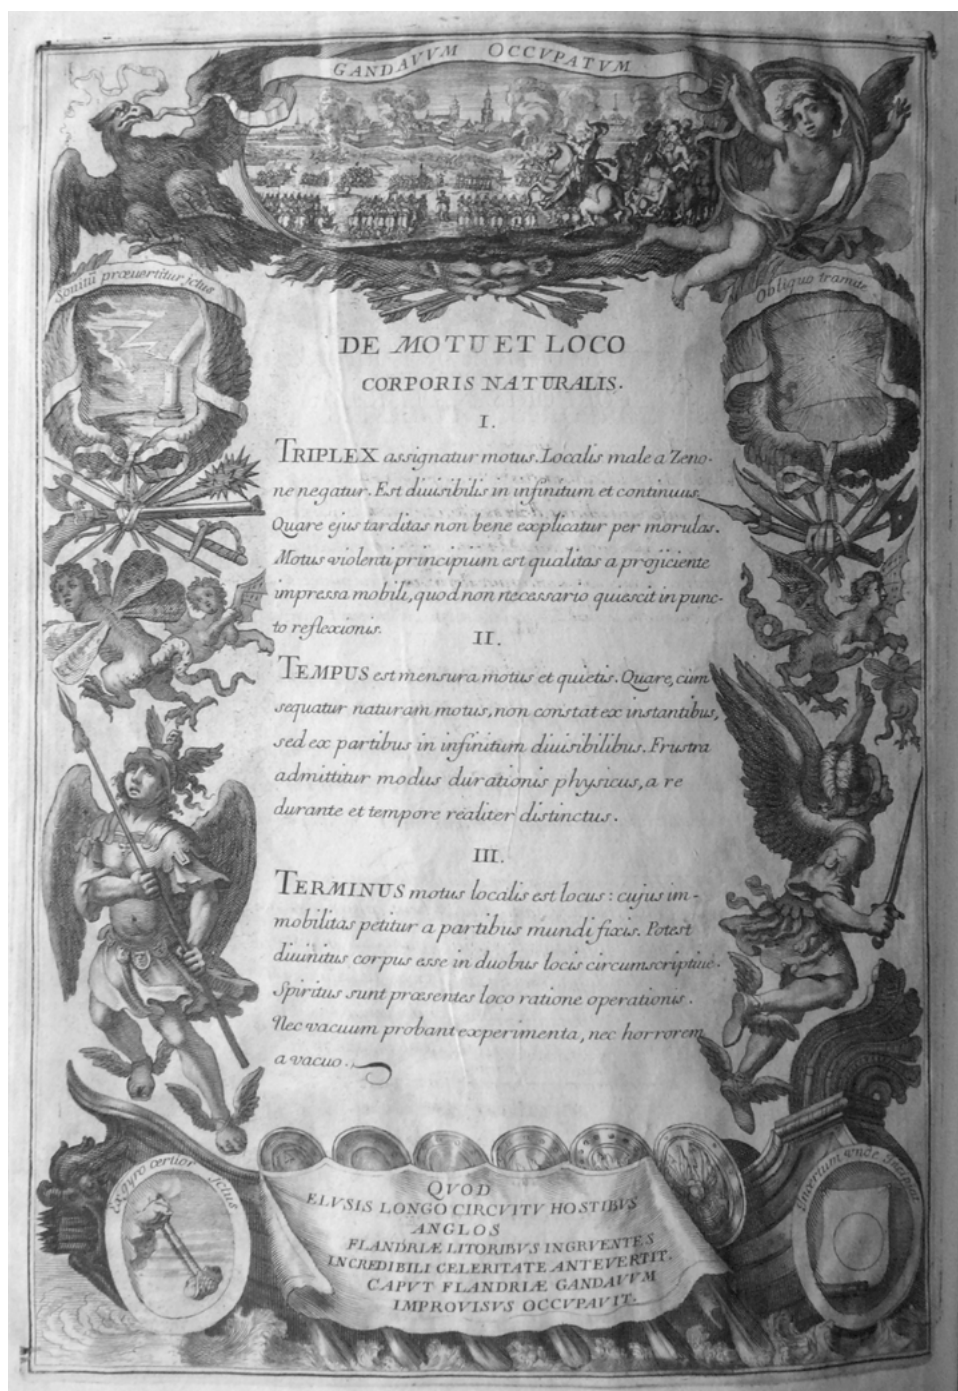 GANDAVVM OCCVPATVM
Sonitū præuertitur jctus
Obliquo tramite
DE MOTU ET LOCO
CORPORIS NATURALIS.
I.
TRIPLEX assignatur motus. Localis male a Zeno-
ne negatur. Est diuisibilis in infinitum et continuus.
Quare ejus tarditas non bene explicatur per morulas.
Motus violenti principium est qualitas a projiciente
impressa mobili, quod non necessario quiescit in punc-
to reflexionis.
II.
TEMPUS est mensura motus et quietis. Quare, cùm
sequatur naturam motus, non constat ex instantibus,
sed ex partibus in infinitum diuisibilibus. Frustra
admittitur modus durationis physicus, a re
durante et tempore realiter distinctus.
III.
TERMINUS motus localis est locus: cujus im-
mobilitas petitur a partibus mundi fixis. Potest
diuinitus corpus esse in duobus locis circumscriptiuè.
Spiritus sunt præsentes loco ratione operationis.
Nec vacuum probant experimenta, nec horrorem
a vacuo.
Ex gyro certior jctus
Incertum vnde incipiat
QVOD
ELVSIS LONGO CIRCVITV HOSTIBVS
ANGLOS
FLANDRIÆ LITORIBVS INGRVENTES
INCREDIBILI CELERITATE ANTEVERTIT.
CAPVT FLANDRIÆ GANDAVVM
IMPROVISVS OCCVPAVIT.